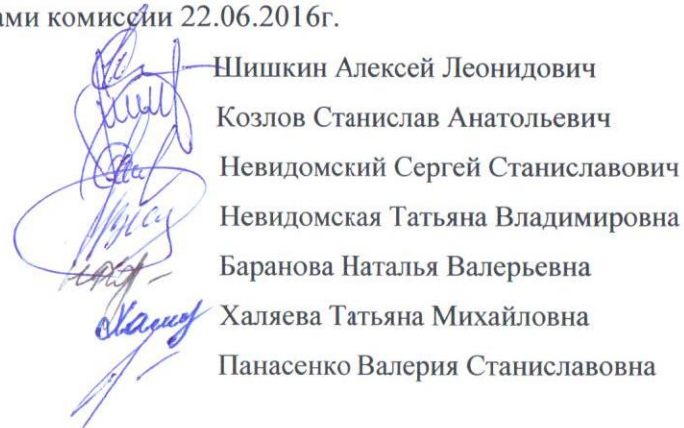 ами комиссии 22.06.2016г.
Шишкин Алексей Леонидович
Козлов Станислав Анатольевич
Невидомский Сергей Станиславович
Невидомская Татьяна Владимировна
Баранова Наталья Валерьевна
Халяева Татьяна Михайловна
Панасенко Валерия Станиславовна